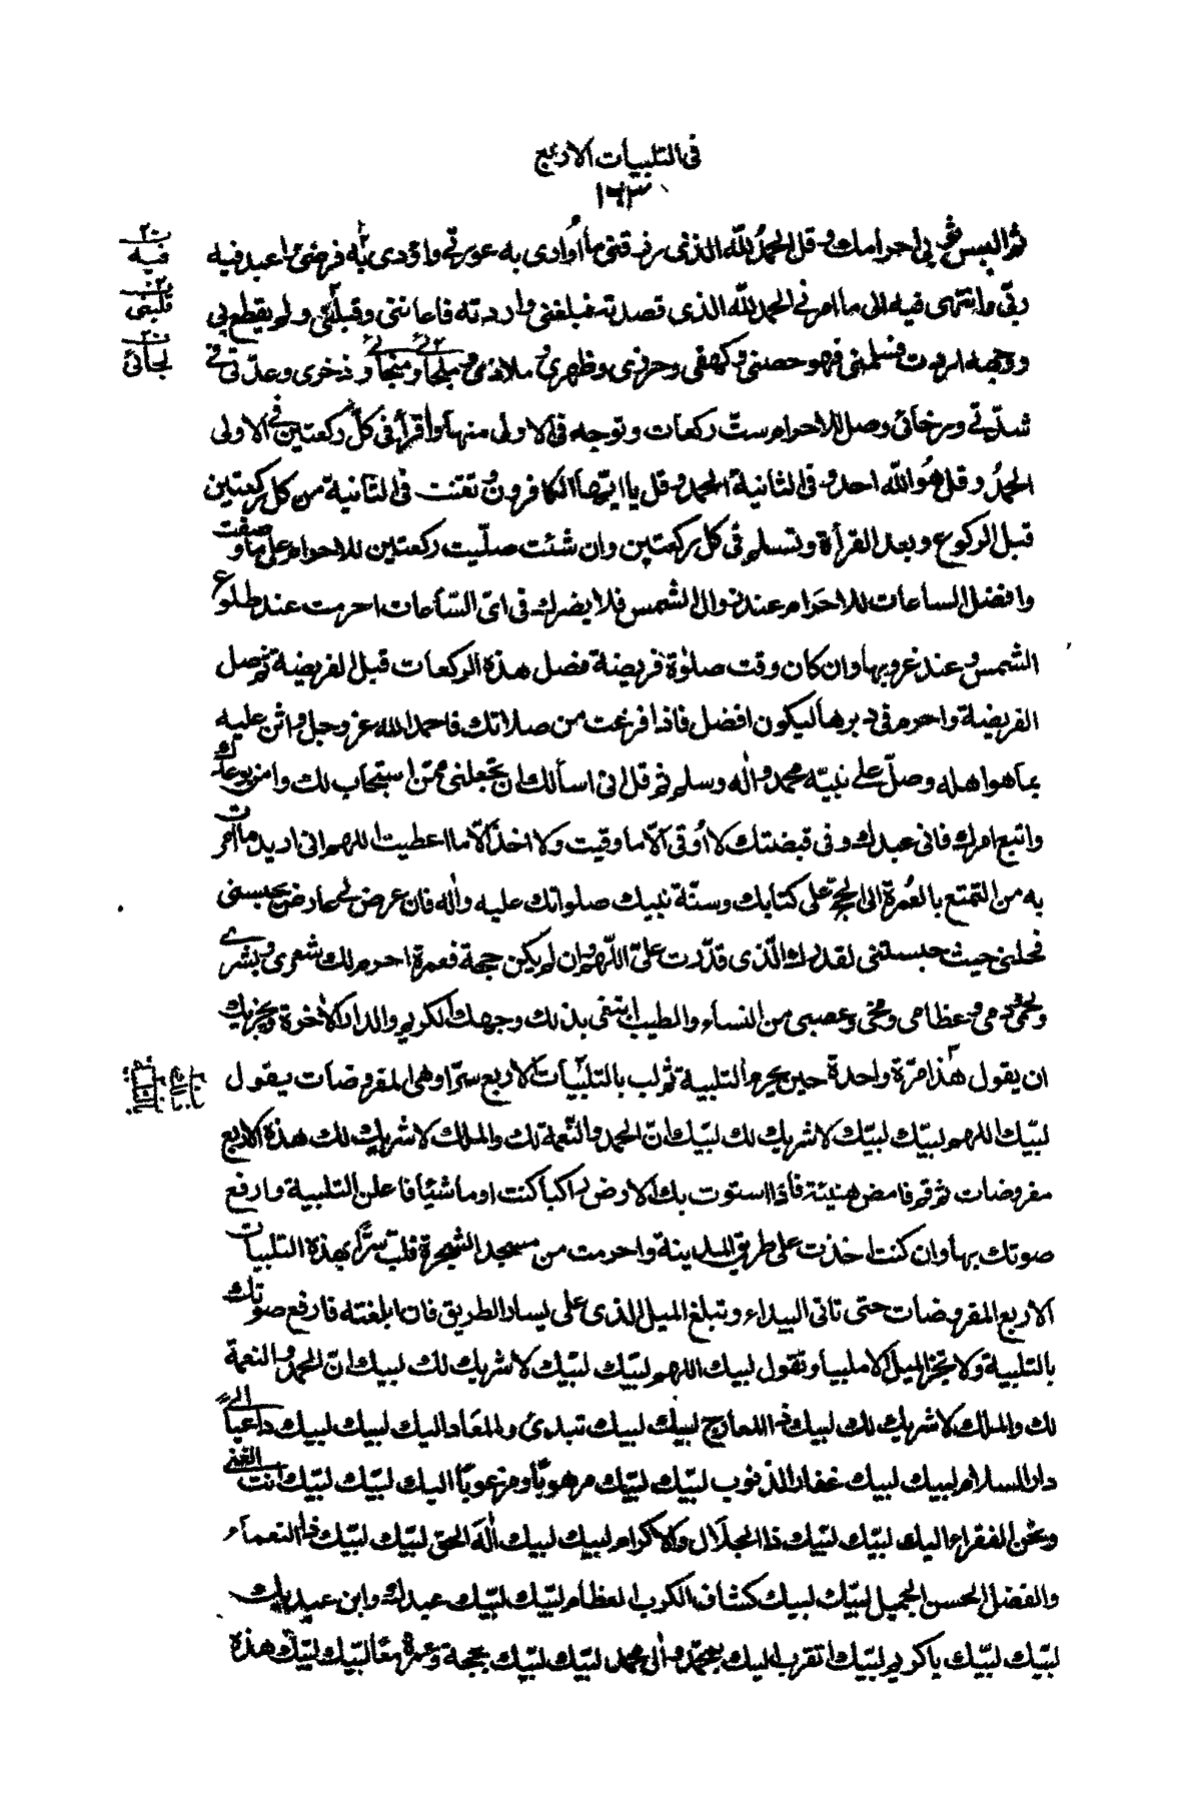 فى التلبيات الاربع
١٦٣
ثم البس ثوبى احرامك وقل الحمد لله الذى رزقنى ما أوارى به عورتى واؤدى به فرضى اعبد فيه
ربى وانتهى فيه الى ما امرنى الحمد لله الذى قصدته فبلغنى واردته فاعاننى وقبلنى ولم يقطع بى
ووجهه اردت فسلمنى فهو حصنى وكهفى وحرزى وظهرى وملاذى وملجأى ومنجأى وذخرى وعدتى فى
شدتى ورخائى وصل للاحرام ست ركعات وتوجه فى الاولى منها واقرأ فى كل ركعتين فى الاولى
الحمد وقل هو الله احد وفى الثانية الحمد وقل يا ايها الكافرون وتقنت فى الثانية من كل ركعتين
قبل الركوع وبعد القرأة وتسلم فى كل ركعتين وان شئت صليت ركعتين للاحرام على ما وصفت
وافضل الساعات للاحرام عند زوال الشمس فلا يضرك فى اى الساعات احرمت عند طلوع
الشمس وعند غروبها وان كان وقت صلوة فريضة فصل هذه الركعات قبل الفريضة ثم صل
الفريضة واحرم فى دبرها ليكون افضل فاذا فرغت من صلاتك فاحمد الله عز وجل واثن عليه
بما هو اهله وصل على نبيه محمد واله وسلم ثم قل انى اسألك ان تجعلنى ممن استجاب لك وامن بوعدك
واتبع امرك فانى عبدك وفى قبضتك لا أوقى الا ما وقيت ولا اخذ الا ما اعطيت اللهم انى اريد ما امرت
به من التمتع بالعمرة الى الحج على كتابك وسنة نبيك صلواتك عليه واله فان عرض لى عارض يحبسنى
فحلنى حيث حبستنى لقدرك الذى قدرت على اللهم وان لم يكن حجة فعمرة احرم لك شعرى وبشرى
ولحمى ودمى وعظامى ومخى وعصبى من النساء والطيب ابتغى بذلك وجهك الكريم والدار الاخرة ويجزيك
ان يقول هذا مرة واحدة حين يحرم التلبية ثم لب بالتلبيات الاربع سرا وهى المفروضات يقول
لبيك اللهم لبيك لبيك لا شريك لك لبيك ان الحمد والنعمة لك والملك لا شريك لك هذه الاربع
مفروضات ثم قم فامض هنيئة فاذا استوت بك الارض راكبا كنت او ماشيا فاعلن التلبية وارفع
صوتك بها وان كنت اخذت على طريق المدينة واحرمت من مسجد الشجرة فلب سرا بهذه التلبيات
الاربع المفروضات حتى تاتى البيداء وتبلغ الميل الذى على يسار الطريق فاذا بلغته فارفع صوتك
بالتلبية ولا تجز الميل الا ملبيا وتقول لبيك اللهم لبيك لبيك لا شريك لك لبيك ان الحمد والنعمة
لك والملك لا شريك لك لبيك ذا المعارج لبيك لبيك تبدئ والمعاد اليك لبيك لبيك داعيا الى
دار السلام لبيك لبيك غفار الذنوب لبيك لبيك مرهوبا ومرغوبا اليك لبيك لبيك انت الغنى
ونحن الفقراء اليك لبيك لبيك ذا الجلال والاكرام لبيك لبيك اله الحق لبيك لبيك ذا النعماء
والفضل الحسن الجميل لبيك لبيك كشاف الكرب العظام لبيك لبيك عبدك وابن عبديك
لبيك لبيك يا كريم لبيك اتقرب اليك بمحمد وال محمد لبيك لبيك بحجة وعمرة معا لبيك لبيك هذه
فيه
قلبى
لجائى